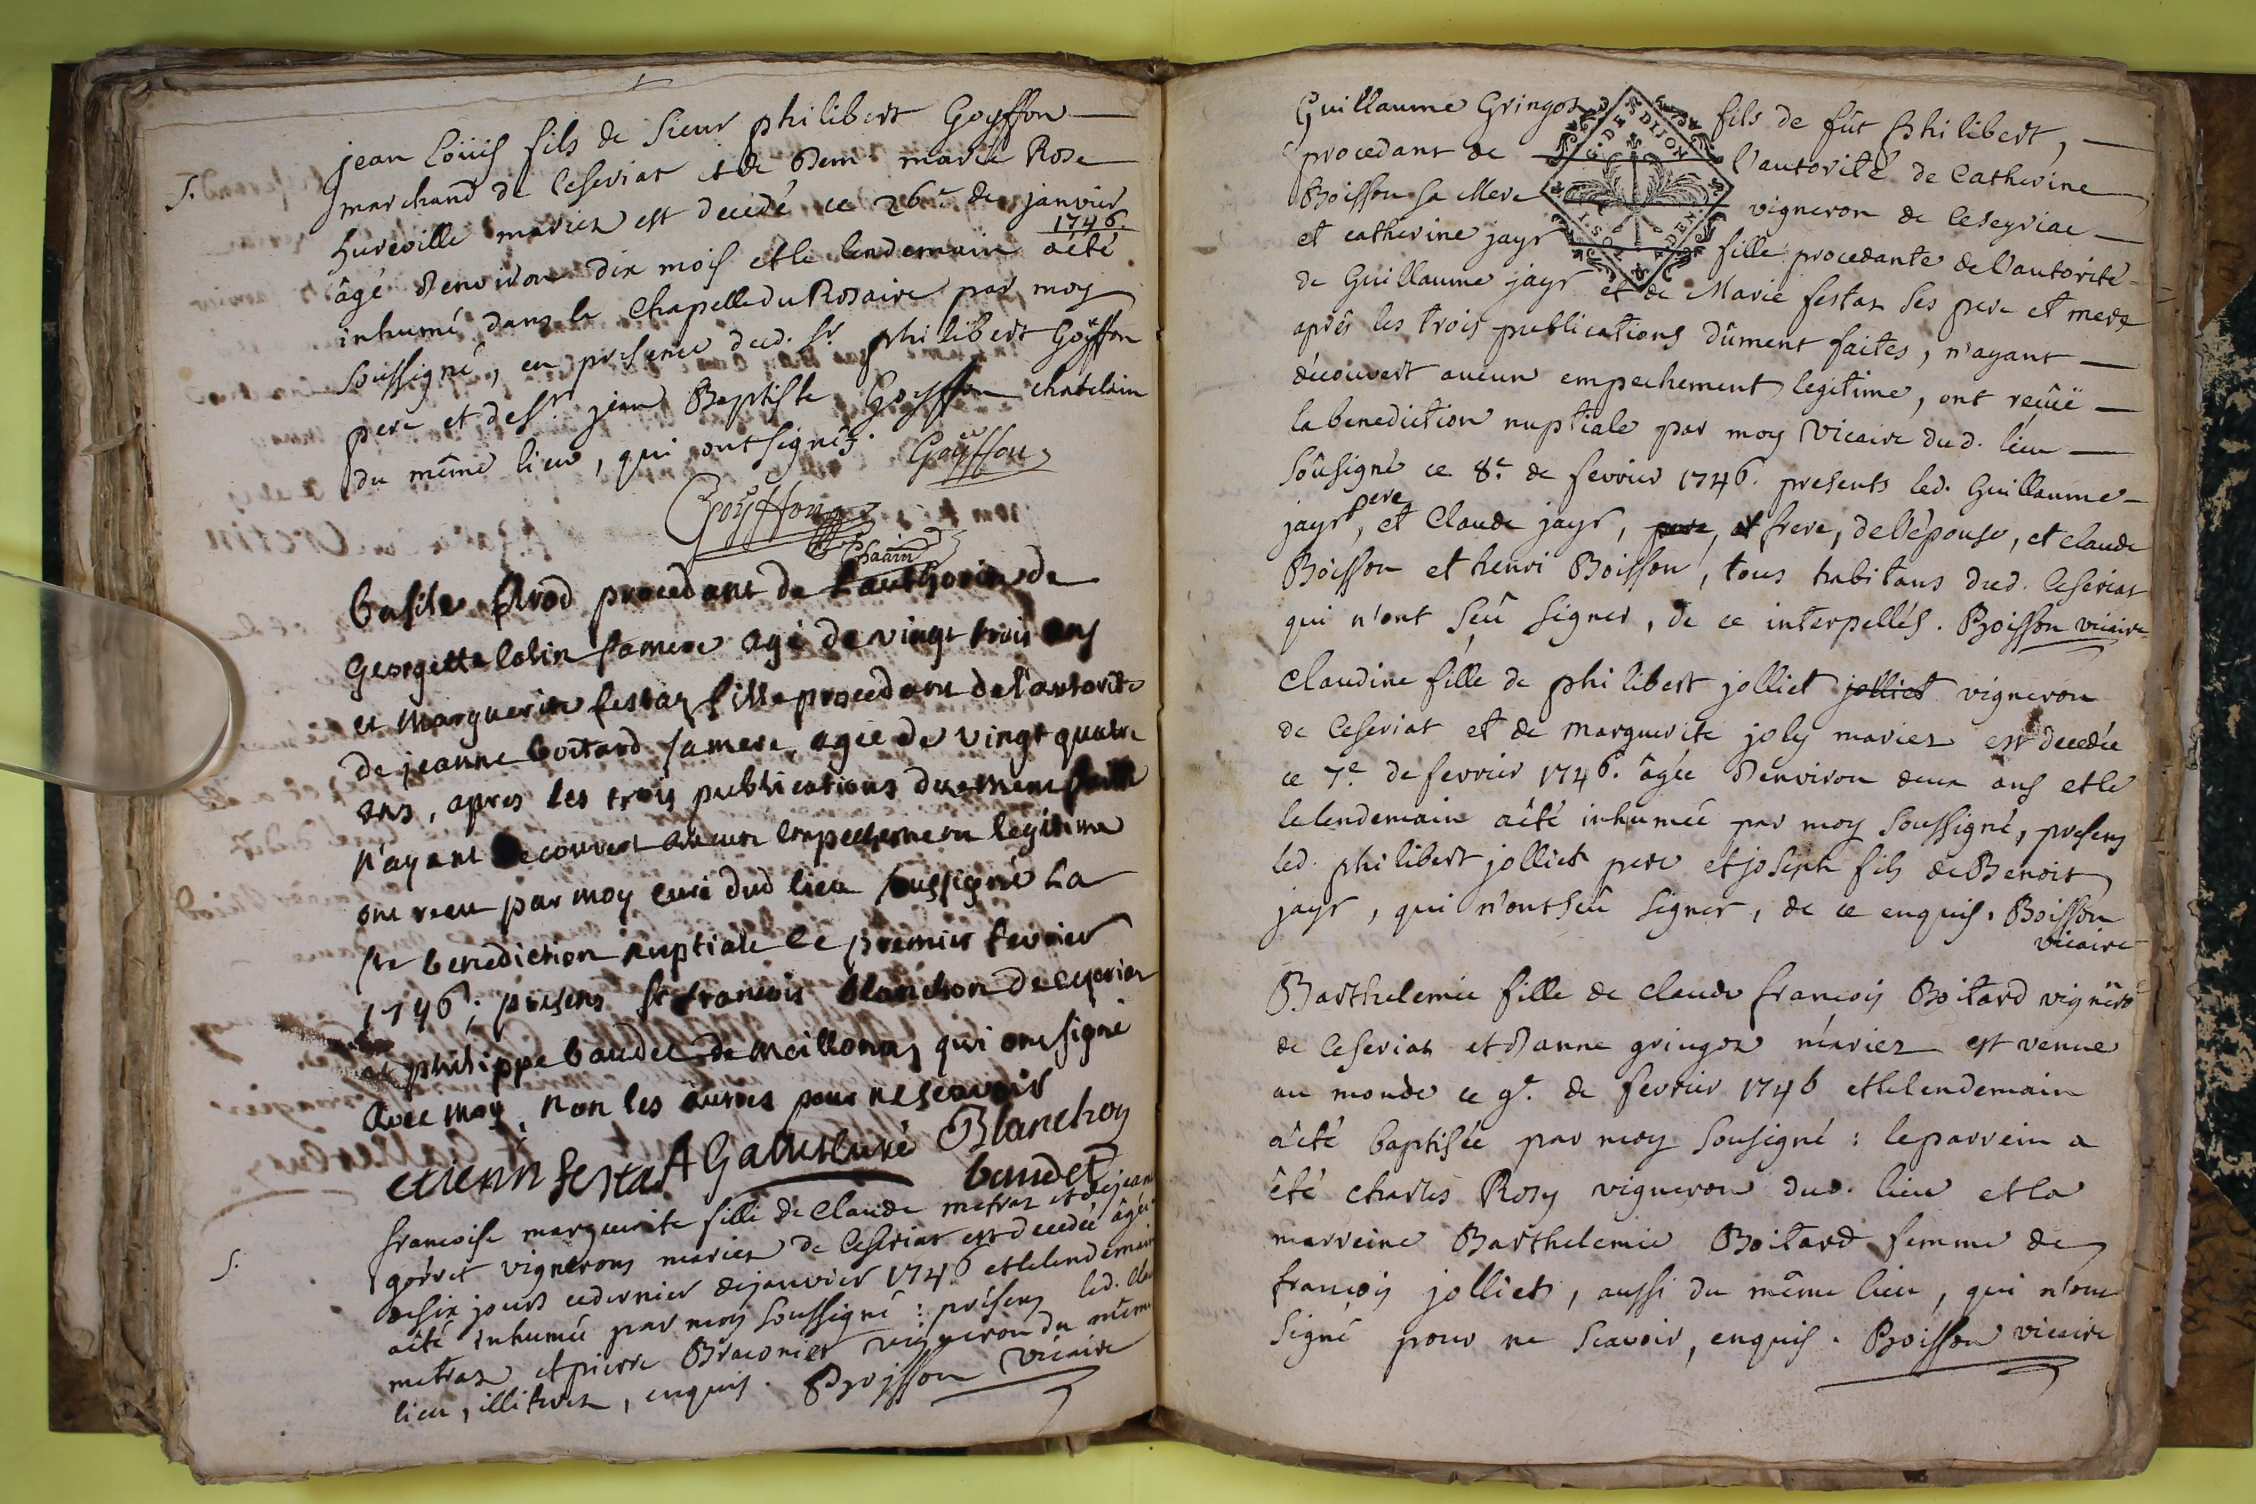 S.
jean Loüis fils de Sieur philibert Goÿffon
marchand de Ceseriat et de Dem marie Rose
hureville mariez est decedé ce 26e. de janvier
1746.
âgé d'environ dix mois et le lendemain aêté
inhumé dans la Chapelle du Rosaire par moy
soussigné, en presence dud. Sr. philibert Goÿffon
pere et de Sr. jean Baptiste Goyffon chatelain
du même lieu, qui ont signéz. Goÿffon
Goÿffon
basile Arod procedant de l'authorité de
Georgette Colin samere agé de vingt trois ans
et Marguerite festaz fille procedant de l'autorité
de jeanne boitard samere agée de vingt quatre
ans, apres les trois publications duement faite
N'ayant decouvert aucun empechement legitime
ont receu par moy curé dud lieu soussigné La
ste benediction nuptiale le premier fevrier
1746; presens sr francois blanchon de ceyeriat
et philippe baudet de meillonaz qui ont signé
avec moy, non les autres pour ne scavoir
etienn festaz A Gallet Curé Blanchon
baudet
S.
francoise marguerite fille de Claude metraz et de jean
gorret vignerons mariez de Ceseriat est decedée âgée
desix jours cedernier dejanvier 1746 et lelendemain
aêté inhumée par moy soussigné : présens led. Clau
metraz et pierre Braconier vigneron du mêm
lieu, illiterez, enquis. Boisson Vicaire
Guillaume Gringoz fils de fût philibert,
procedant de l'autorité de Catherine
Boisson sa Mere vigneron de Ceseyriac
et catherine jayr fille procedante de l'autorité
de Guillaume jayr et de Marie festaz ses pere et mere
aprês les trois publications dûment faites, n'ayant
découvert aucun empechement legitime, ont reçüe
la benediction nuptiale par moy Vicaire dud. lieu
soûsigné ce 8e. de fevrier 1746. presents led. Guillaume
pere
jayr, et Claude jayr, pere, et frere, del'épouse, et claude
Boisson et henri Boisson, tous habitans dud. Ceseriat
qui n'ont seû signer, de ce interpellés. Boisson vicaire
Claudine fille de philibert jolliet jolliet vigneron
de Ceseriat et de marguerite joly mariez est decedée
ce 7e. de fevrier 1746. âgée d'environ deux ans et le
lelendemain aêté inhumée par moy soussigné, presens
led. philibert jolliet pere et joseph fils de Benoit
jayr, qui n'ont seû signer, de ce enquis. Boisson
vicaire
Barthelemie fille de claude françois Boitard vignero
de Ceseriat et d'anne gringoz mariez est venue
au monde ce 9e. de fevrier 1746 et lelendemain
aêté baptisée par moy sousigné : leparrein a
êté charles Rosy vigneron dud. lieu et la
marreine Barthelemie Boitard femme de
françois jolliet, aussi du même lieu, qui n'ont
signé pour ne scavoir, enquis. Boisson vicaire